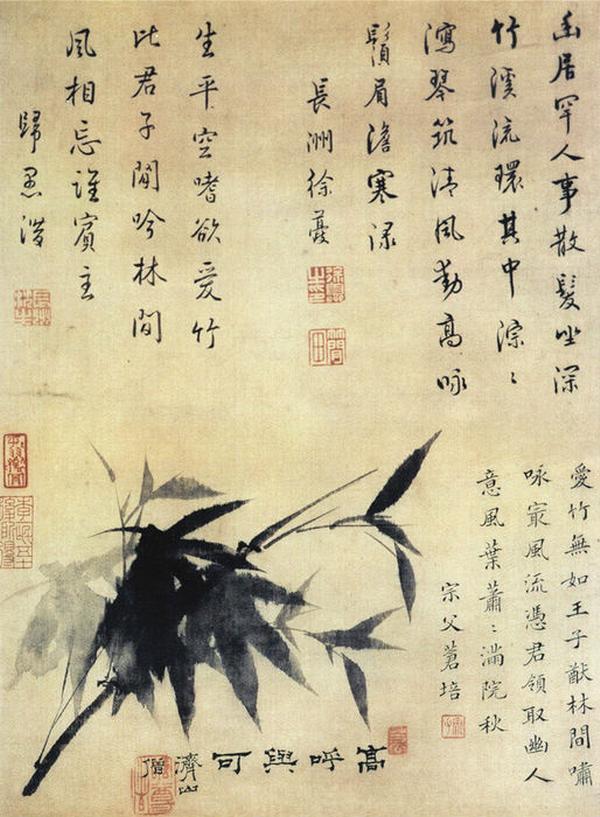 幽居罕人事散髮坐深
竹溪流環其中淙〻
瀉琴筑清風動高咏
鬚眉澹寒渌
長洲徐夔
生平空嗜欲愛竹
比君子閒吟林間
風相忘誰賓主
歸愚潛
愛竹無如王子猷林間嘯
咏㝡風流憑君領取幽人
意風葉蕭〻滿院秋
宗父蒼培
高呼與可
濟山僧